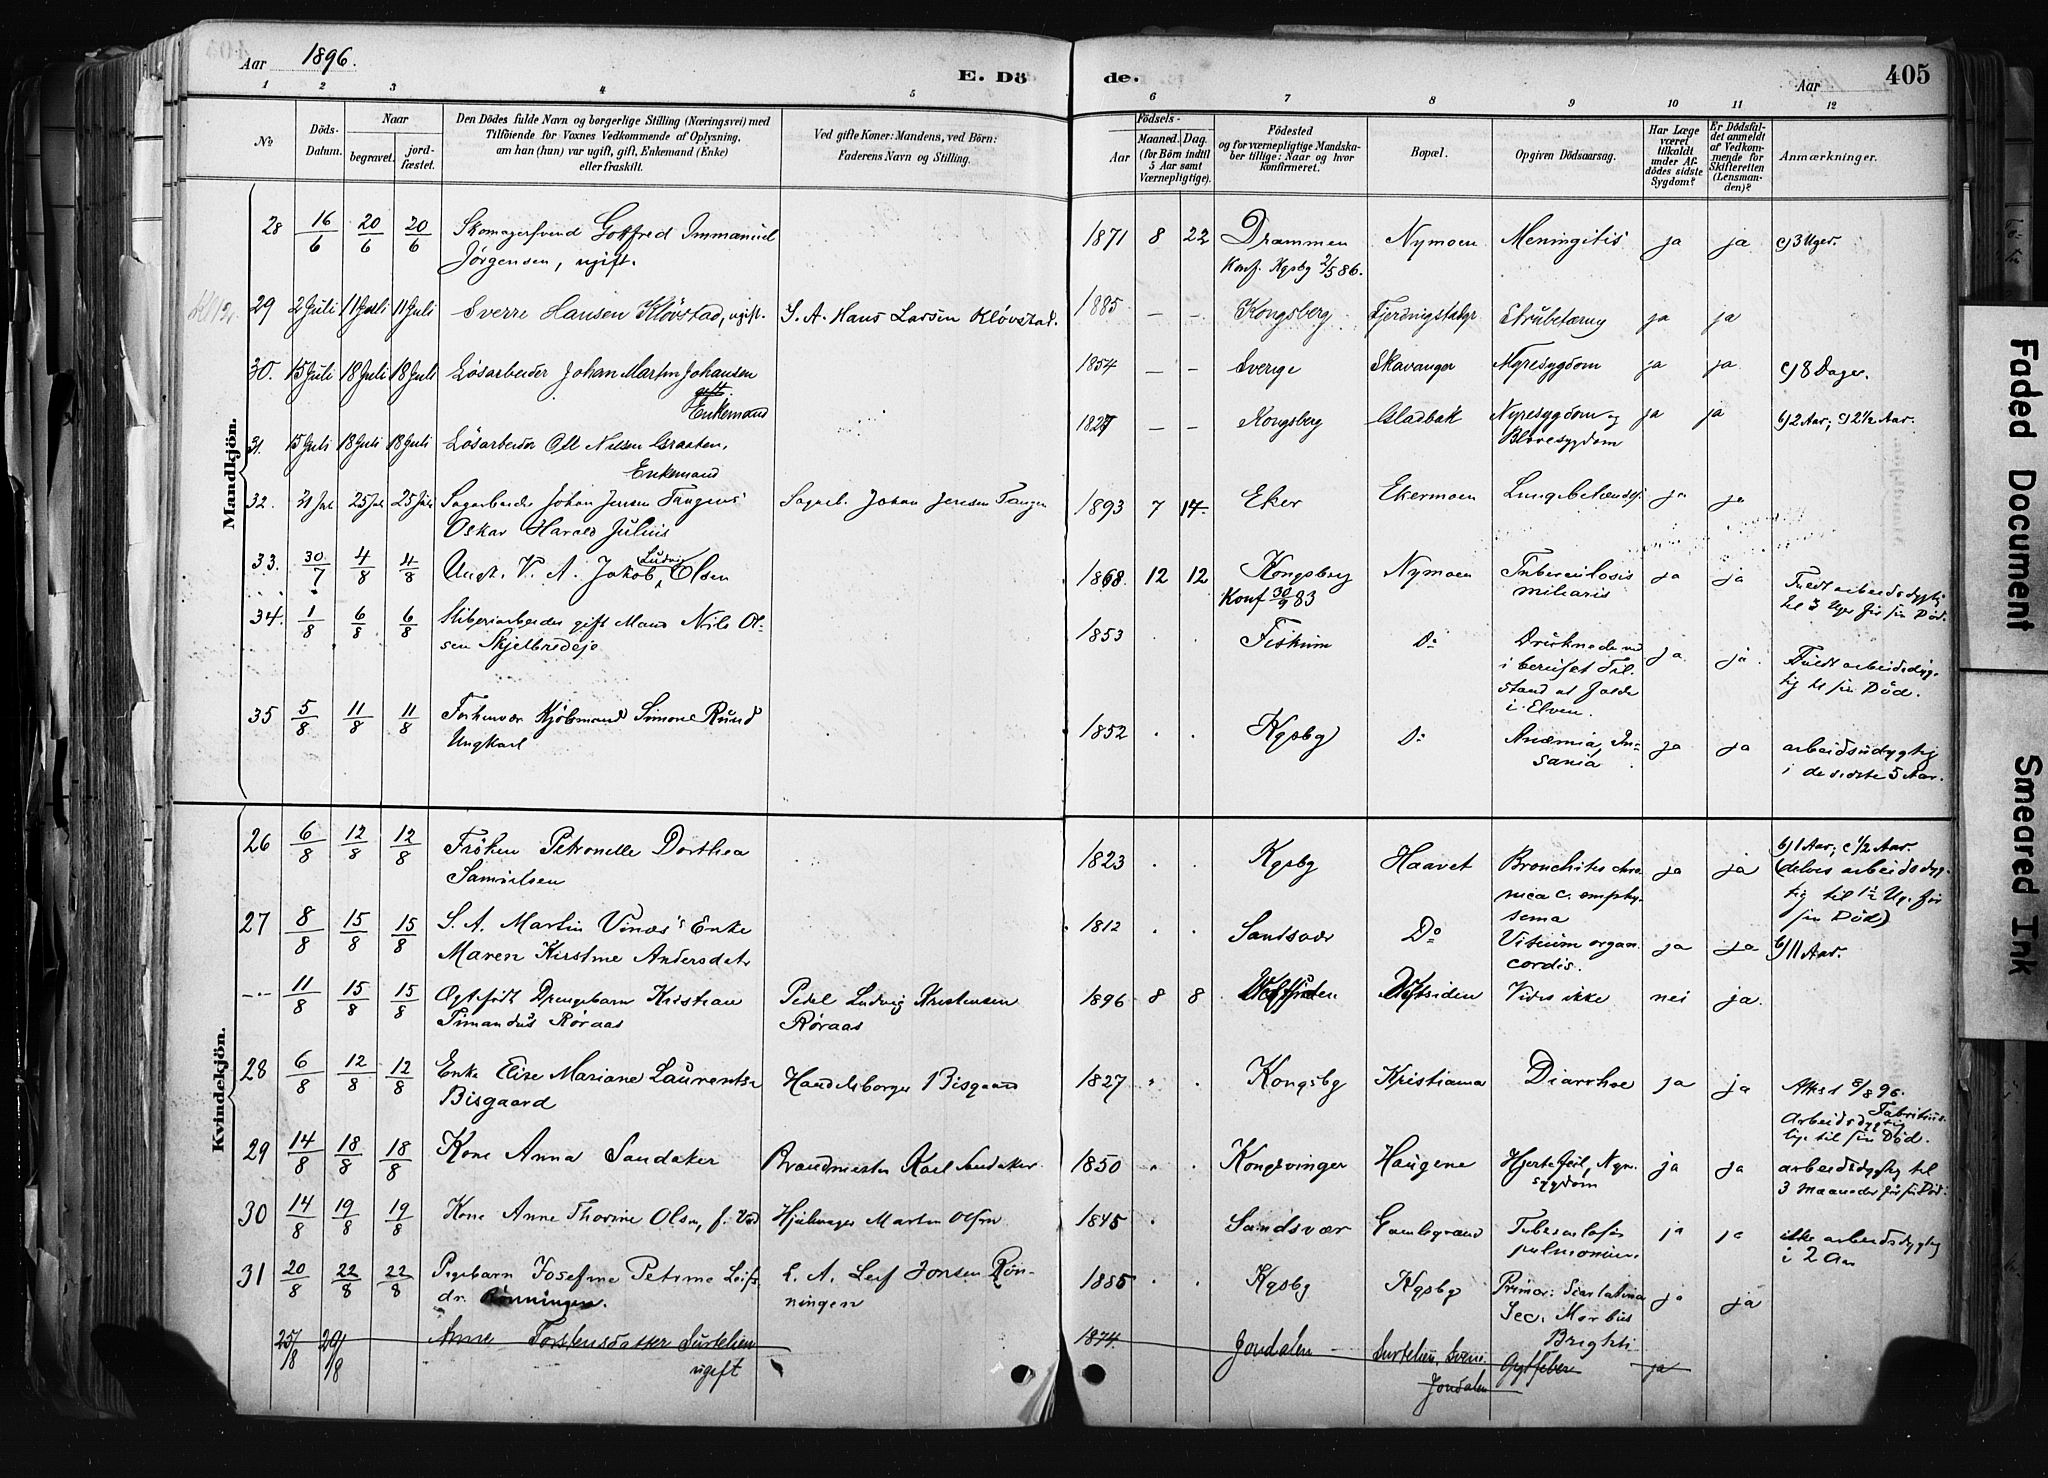 Aar 1896.
E. Dö
de.
Aar
405
1 2 3 4 5 6 7 8 9 10 11 12
No
Döds-Datum.
Naar
begravet.
jord-fæstet.
Den Dödes fulde Navn og borgerlige Stilling (Næringsvei) med
Tilföiende for Voxnes Vedkommende af Oplysning,
om han (hun) var ugift, gift, Enkemand (Enke)
eller fraskilt.
Ved gifte Koner: Mandens, ved Börn:
Faderens Navn og Stilling.
Födsels-
Aar
Maaned. Dag.
(for Börn indtil
5 Aar samt
Værnepligtige).
Födested
og for værnepligtige Mandska-
ber tillige: Naar og hvor
konfirmeret.
Bopæl.
Opgiven Dödsaarsag.
Har Læge
været
tilkaldt
under Af-
dödes sidste
Sygdom?
Er Dödsfal-
det anmeldt
af Vedkom-
mende for
Skifteretten
(Lensman-
den)?
Anmærkninger.
Mandkjön.
28 16/6 20/6 20/6 Skomagersvend Gottfred Immanuel 1871 8 22 Drammen Nymoen Meningitis ja ja c) 3 Uger.
Jörgensen, ugift. Konf. Kgsbg 2/5 86.
29 2 Juli 11 Juli 11 Juli Sverre Hansen Kløvstad, ugift. S. A. Hans Larsen Kløvstad. 1885 – – Kongsberg Strubetæring ja ja
30. 15 Juli 18 Juli 18 Juli Løsarbeider Johan Martin Johansen 1854 – – Sverige Skavanger Nyresygdom ja ja c) 8 Dage.
gift
Enkemand
31. 15 Juli 18 Juli 18 Juli Løsarbeider Ole Nilsen Graaten, 1827 – – Kongsberg Gladbak Nyresygdom og ja ja b) 2 Aar; c) 2½ Aar.
Enkemand Blæresygdom
32. 21 Jul 25 Jul 25 Juli Sagarbeider Johan Jensen Tangens Sagarb. Johan Jensen Tangen 1893 7 14. Eker Ekermoen ja ja
Oskar Harald Julius
33. 30/7 4/8 4/8 Ungk. V. A. Jakob Ludvig Olsen 1868. 12 12 Kongsberg Nymoen Tuberculosis ja ja Fuldt arbeidsdygtig
Konf 30/9 83 miliaris til 3 Uger før sin Død.
34. 1/8 6/8 6/8 Sliberiarbeider gift Mand Nils Ol- 1853 . . Fiskum Do Druknede ved ja ja Fuldt arbeidsdyg-
sen Skjelbredeje i beruset Til- tig til sin Død.
stand at falde
i Elven.
35 5/8 11/8 11/8 Forhenvær Kjøbmand Simone Rund 1852 . . Kgsbg Do Anæmia, In- ja ja arbeidsudygtig
Ungkarl sania i de sidste 5 Aar.
Kvindekjön.
26 6/8 12/8 12/8 Frøken Petronelle Dorthea 1823 . . Kgsbg Haavet Bronchites chro- ja ja b) 1 Aar; c ½ Aar.
Samuelsen nica c. emphy- (delvis arbeidsdyg-
sema tig til 1½ Ug. før
sin Død)
27 8/8 15/8 15/8 S. A. Martin Vinæs's Enke 1812 . . Sandsvær Do Vitium organ. ja ja b) 11 Aar.
Maren Kirstine Andersdatr cordis.
–·– 11/8 15/8 15/8 Ægtefødt Drengebarn Kristian Pedel Ludvig Kristensen 1896 8 8 Vestsiden Vestsiden Vides ikke nei ja.
Timandus Røraas Røraas
28 6/8 12/8 12/8 Enke Elise Mariane Laurentse Handelsborger Bisgaard 1827 . . Kongsbg Kristiania Diarrhoe ja ja Attest 8/8 96.
Bisgaard Fabritius.
29 14/8 18/8 18/8 Kone Anna Sandaker Brandmester Karl Sandaker. 1850 . . Kongsvinger Haugene Hjertefeil, Nyre- ja ja arbeidsdygtig til
sygdom 3 maaneder før sin Død.
30 14/8 19/8 19/8 Kone Anne Thorine Olsen, f. Hjulmager Martin Olsen 1845 . Sandsvær Gamlegrænd Tuberculosis ja ja ikke arbeidsdygtig
pulmonium. i 2 Aar
31 20/8 22/8 22/8 Pigebarn Josefine Petrine Leifs- L. A. Leif Jonsen Røn- 1885 . . Kgsbg Kgsbg Primær: Scarlatina ja ja
dr. Rønningen. ningen Sec: Morbus
Brightii
25/8 29/8 Anne Torstensdatter Surtelien 1874. Jondalen Surtelien, Øvre ja
ugift Jondalen
Faded Document
Smeared Ink